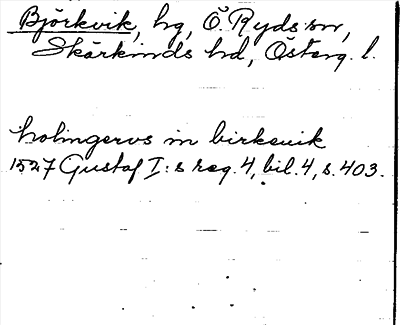 Björkvik, hg, Ö. Ryds sn,
Skärkinds hd, Österg. l.
holmgerus in birkeuik
1527 Gustaf I:s reg. 4, bil. 4, s. 403.